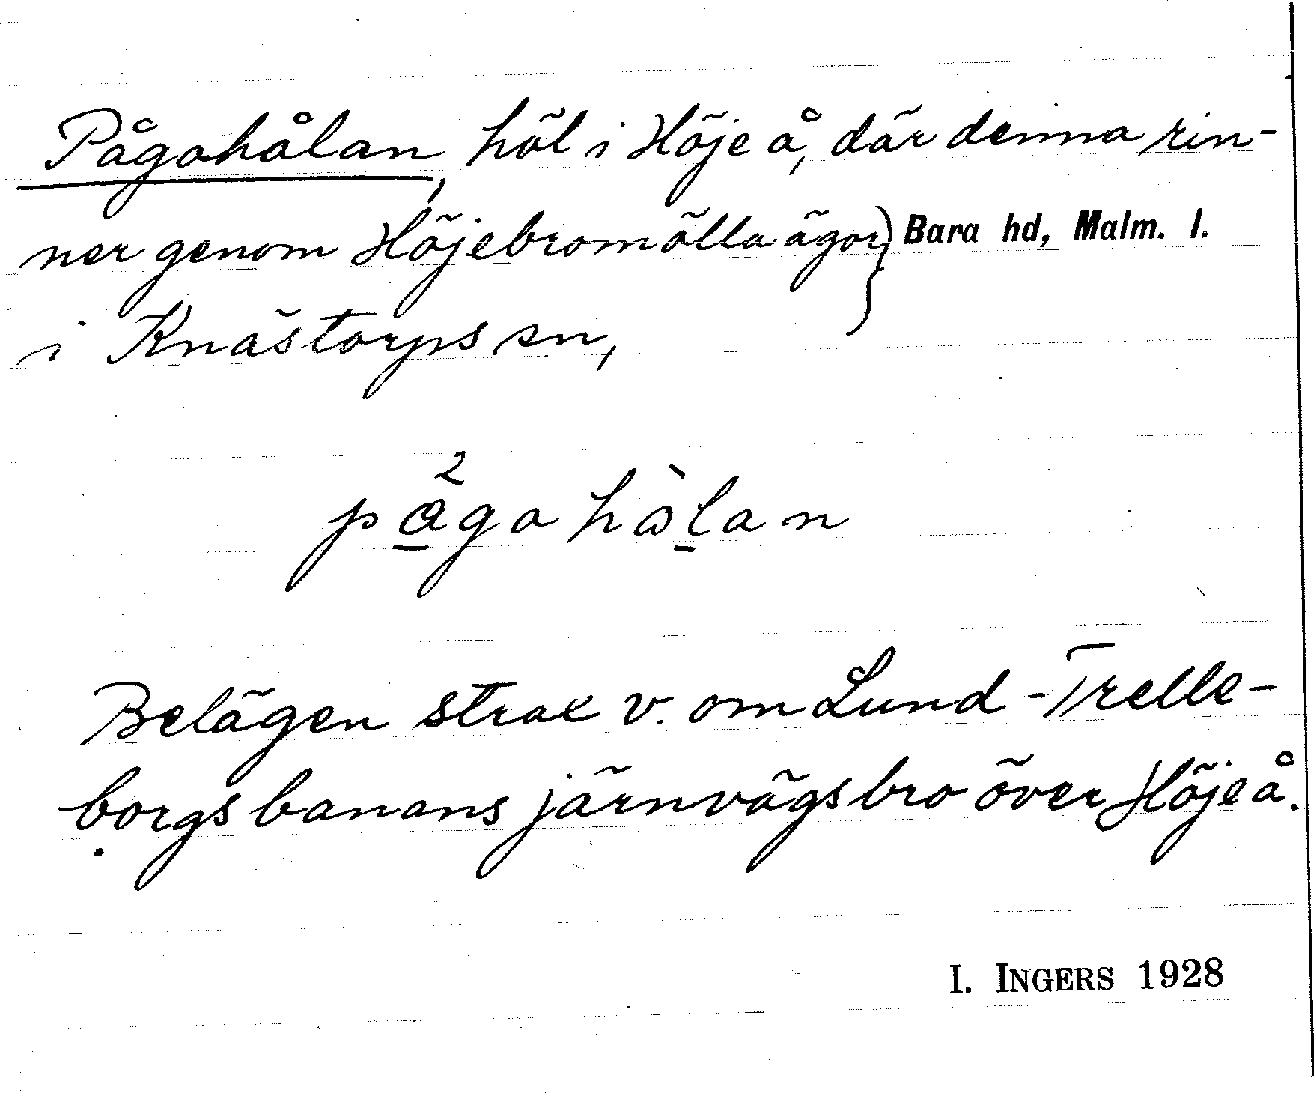 Pågahålan, höl i Höje å, där denna rin-
ner genom Höjebromölla ägor } Bara hd, Malm. l.
i Knästorps sn,
pågahàlan
Belägen strax v. om Lund-Trelle-
borgsbanans järnvägsbro över Höje å.
I. INGERS 1928